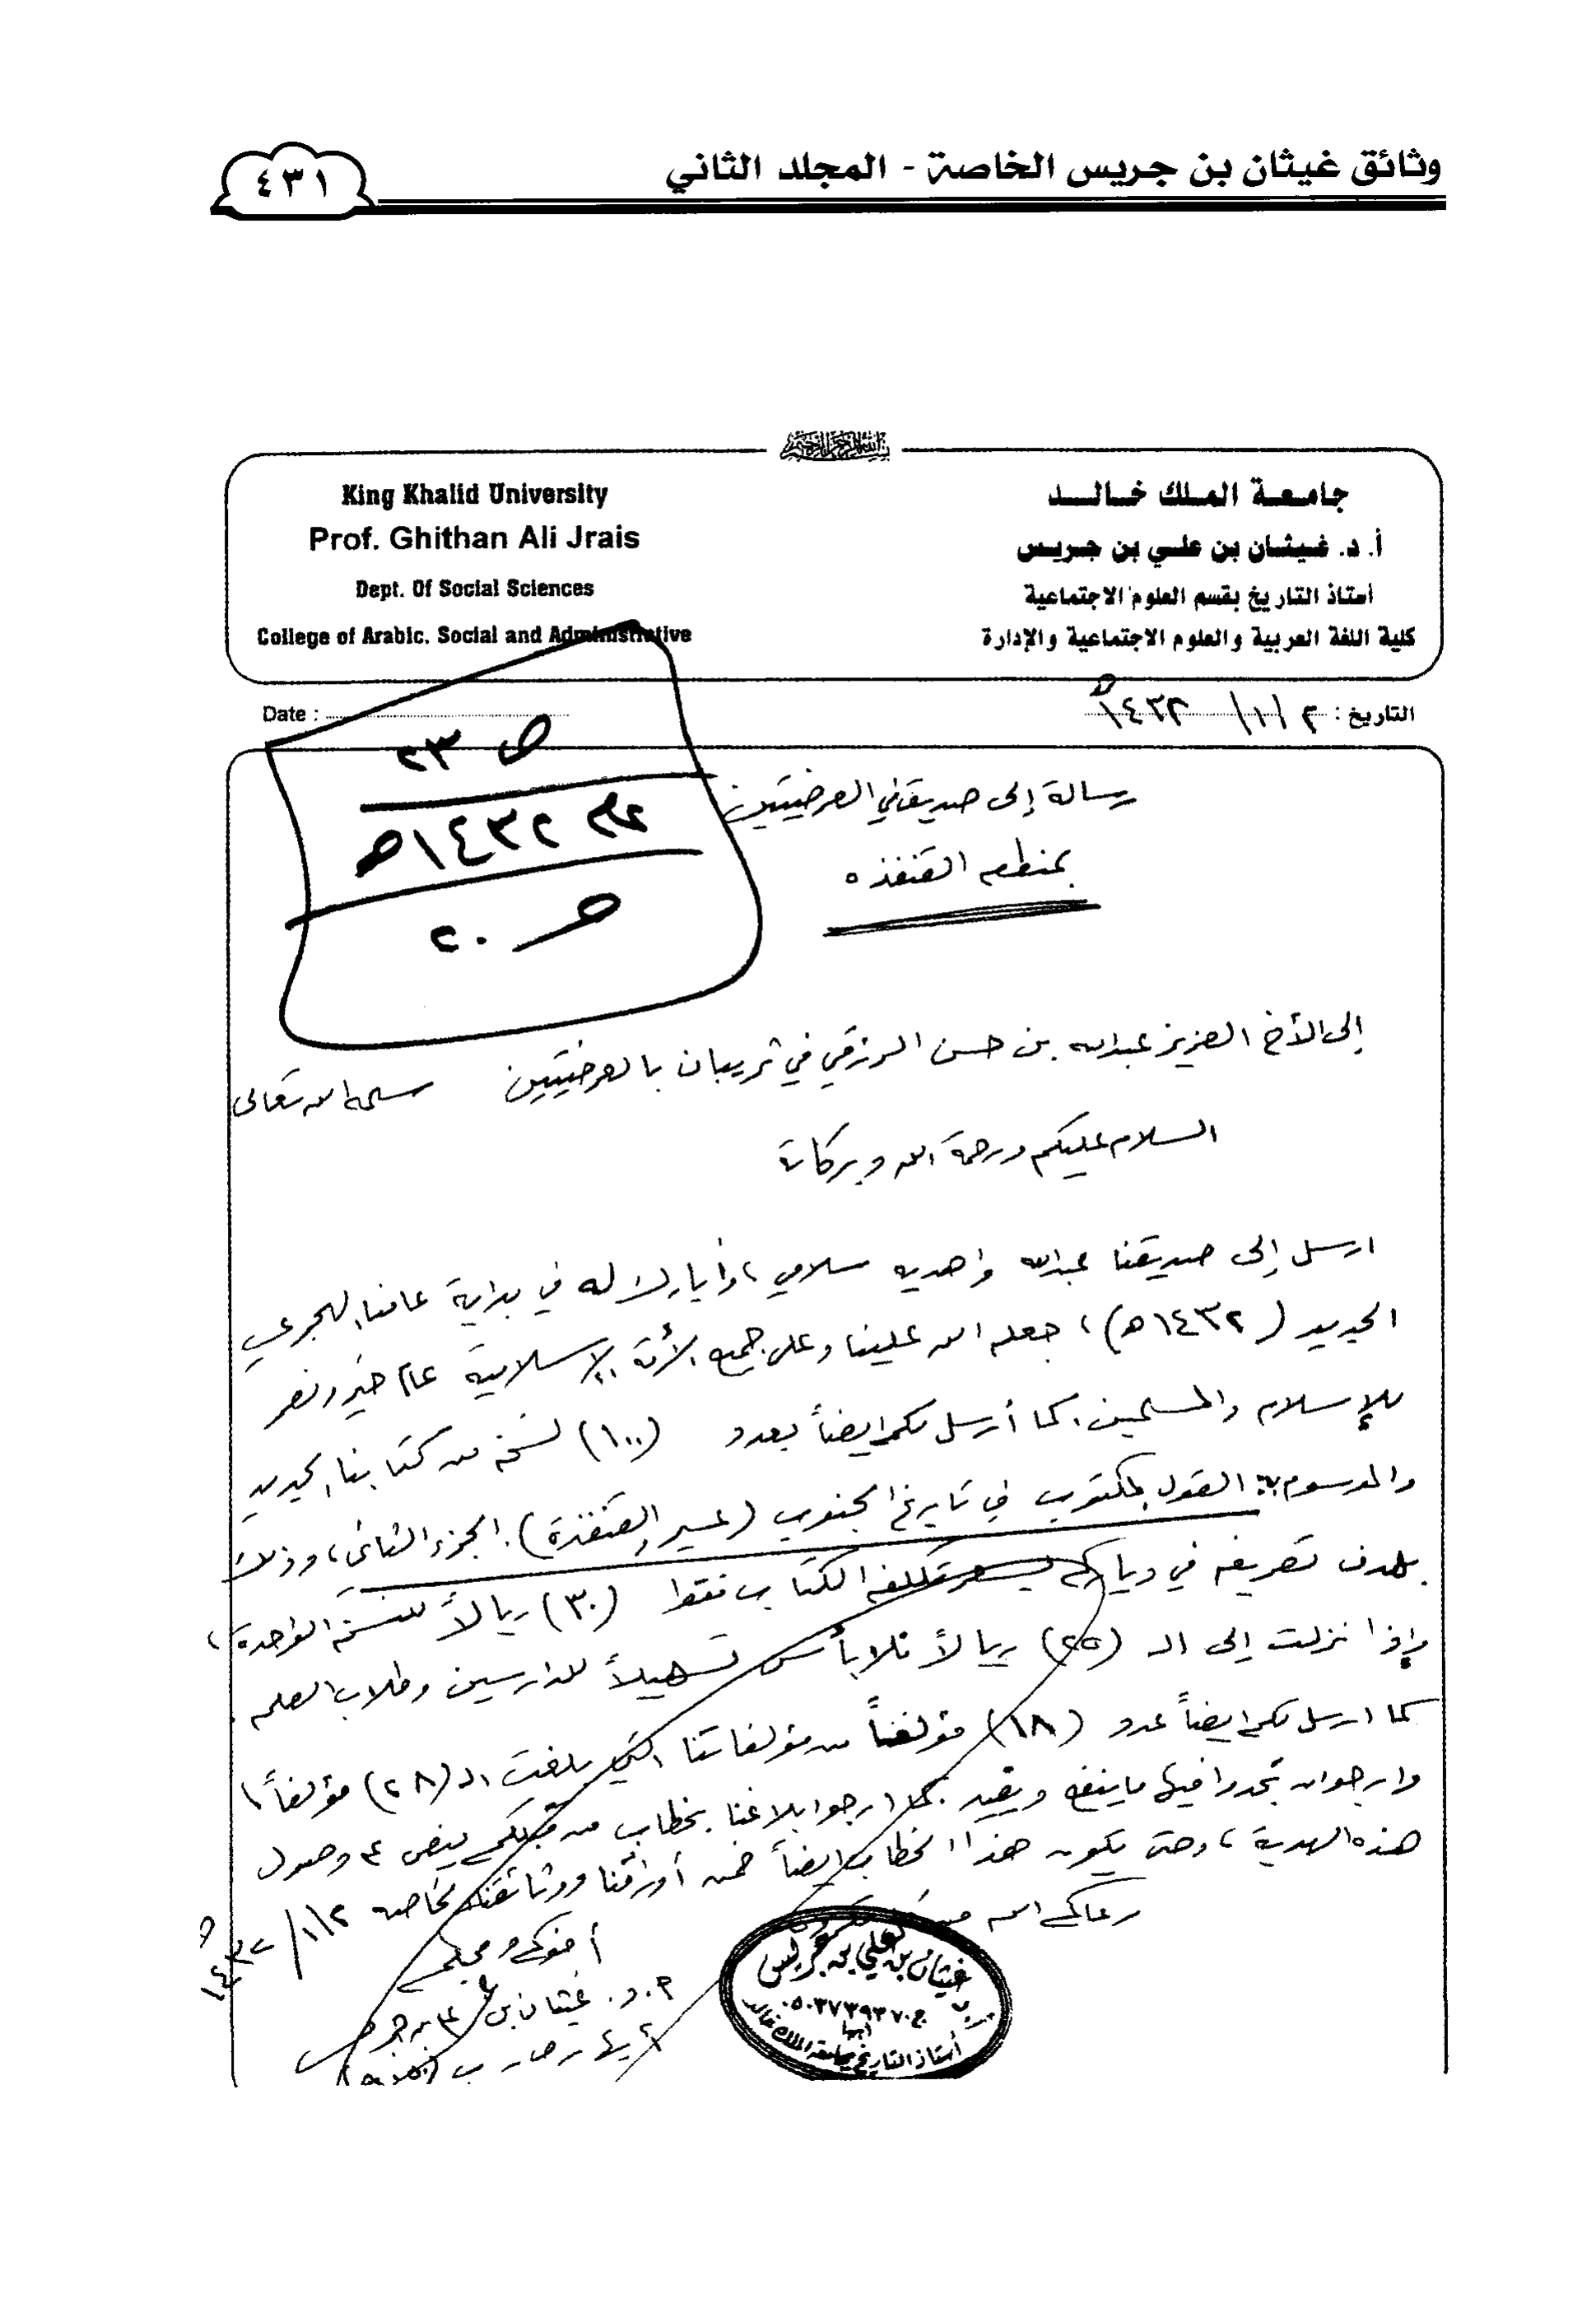 وثائق غيثان بن جريس الخاصة - المجلد الثاني
٤٣١
بسم الله الرحمن الرحيم
جامعة الملك خالد
أ. د. غيثان بن علي بن جريس
أستاذ التاريخ بقسم العلوم الاجتماعية
كلية اللغة العربية والعلوم الاجتماعية والإدارة
King Khalid University
Prof. Ghithan Ali Jrais
Dept. Of Social Sciences
College of Arabic. Social and Administrative
التاريخ : ٢ / ١ / ١٤٣٢هـ
Date :
ص ٣٣
عام ١٤٣٢هـ
٢٠
رسالة إلى صديق في العرضيتين
بمنطقة القنفذه
إلى الأخ العزيز عبدالله بن حسن الرزقي في ثريبان بالعرضيتين سلمه الله تعالى
السلام عليكم ورحمة الله وبركاته
ارسل إلى صديقنا عبدالله واهديه سلامي، وأبارك له في بداية عامنا الهجري
الجديد (١٤٣٢هـ)، جعله الله علينا وعلى جميع الأمة الإسلامية عام خير ونصر
للإسلام والمسلمين. كما أرسل لكم ايضاً بعدد (١٠٠) نسخة من كتابنا الجديد
والموسوم بـ: القول المكتوب في تاريخ الجنوب (عسير والقنفذة). الجزء الثاني، وذلك
بهدف تصريفه في دياركم بسعر تكلفه الكتاب فقط (٣٠) ريالاً للنسخة الواحدة،
وإذا نزلت إلى الـ (٢٥) ريالاً فلا بأس تسهيلاً للدارسين وطلاب العلم.
كما ارسل لكم ايضاً عدد (١٨) مؤلفاً من مؤلفاتنا التي بلغت الـ (٢٨) مؤلفاً،
وارجو ان تجدوا فيها ما ينفع ويفيد. كما ارجو ابلاغنا بخطاب من قبلكم ينص على وصول
هذه الهدية، وحتى يكون هذا الخطاب ايضاً ضمن أوراقنا ووثائقنا الخاصه ٢/١/١٤٣٢هـ
رعاكم الله
أخوكم ومحبكم
أ. د. غيثان بن علي بن جريس
أبها ص.ب
غيثان بن علي بن جريس
ج ٠٥٠٣٧٣٩٣٧٠
أبها
أستاذ التاريخ بجامعة الملك خالد